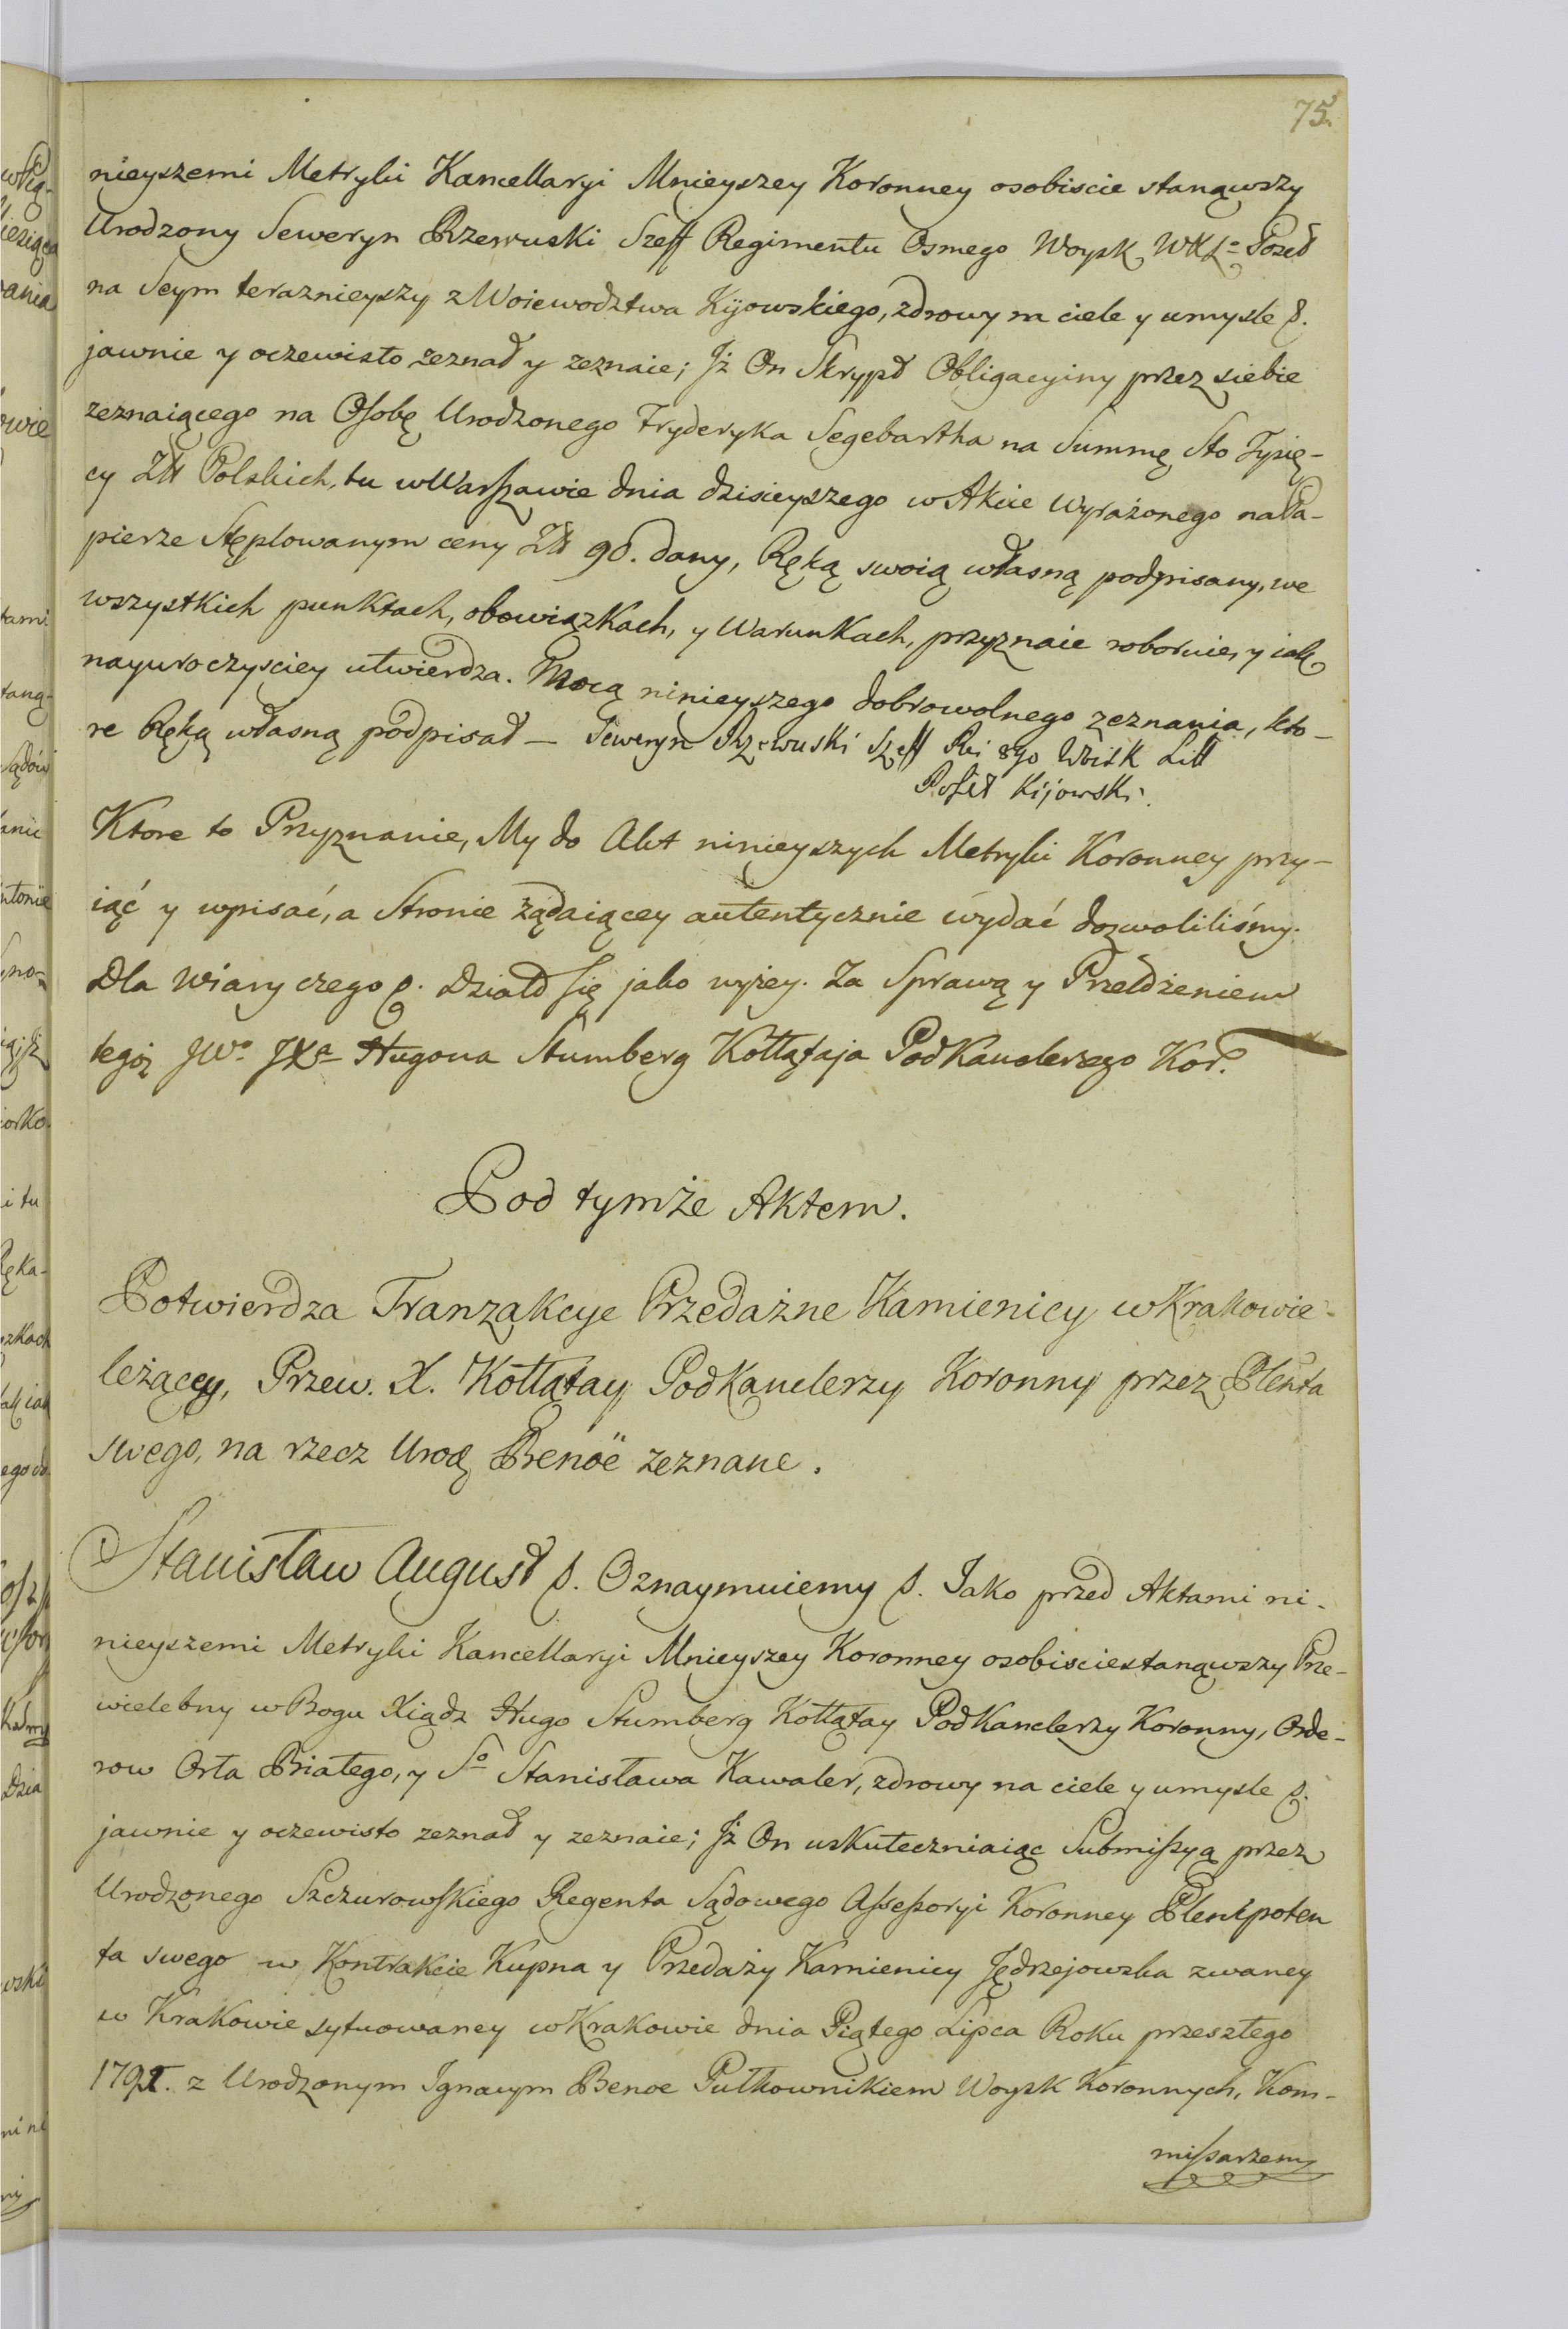 75.
nieyszemi Metryki Kancellaryi Mnieyszey Koronney osobiscie stanąwszy
Urodzony Seweryn Rzewuski Szeff Regimentu Osmego Woysk WKLo Poseł
na Seym teraznieyszy z Woiewodztwa Kijowskiego, zdrowy na ciele y umysle p.
jawnie y oczewisto zeznał y zeznaie; Jż On Skrypt Obligacyiny przez siebie
zeznaiącego na Osobę Urodzonego Fryderyka Segebartha na Summę Sto Tysię-
cy Złł Polskich, tu w Warszawie dnia dzisieyszego w Akcie wyrażonego na Pa-
pierze Stęplowanym ceny Złł 90. dany, Ręką swoią własną podpisany, we
wszystkich punktach, obowiązkach, y Warunkach, przyznaie roboruie, y iak
nayuroczysciey utwierdza. Mocą ninieyszego dobrowolnego zeznania, kto-
re Ręką własną podpisał — Seweryn Rzewuski Szeff Rei 8go Woisk Litt
Poseł Kijowski.
Ktore to Przyznanie, My do Akt ninieyszych Metryki Koronney przy-
iąć y wpisać, a Stronie żądaiącey autentycznie wydać dozwoliliśmy.
Dla Wiary czego p. Działo się jako wyżey. Za Sprawą y Przełożeniem
tegoż JWo JXa Hugona Stumberg Kołłątaja Podkanclerzego Kor.
Pod tymże Aktem.
Potwierdza Tranzakcye Przedażne Kamienicy w Krakowie
leżącey, Przew. X. Kołłątay Podkanclerzy Koronny przez Plenta
swego, na rzecz Urod Benoë zeznane.
Stanisław August p. Oznaymuiemy p. Jako przed Aktami ni-
nieyszemi Metryki Kancellaryi Mnieyszey Koronney osobiscie stanąwszy Prze-
wielebny w Bogu Xiądz Hugo Stumberg Kołłątay Podkanclerzy Koronny, Orde-
row Orła Białego, y So Stanisława Kawaler, zdrowy na ciele y umysle p.
jawnie y oczewisto zeznał y zeznaie; Jż On uskuteczniaiąc Submissyą przez
Urodzonego Szczurowskiego Regenta Sądowego Assessoryi Koronney Plenipoten
ta swego w Kontrakcie Kupna y Przedaży Kamienicy Jędrzejowska zwaney
w Krakowie sytuowaney w Krakowie dnia Piątego Lipca Roku przeszłego
1791. z Urodzonym Ignacym Benoe Pułkownikiem Woysk Koronnych, Kom-
missarzem